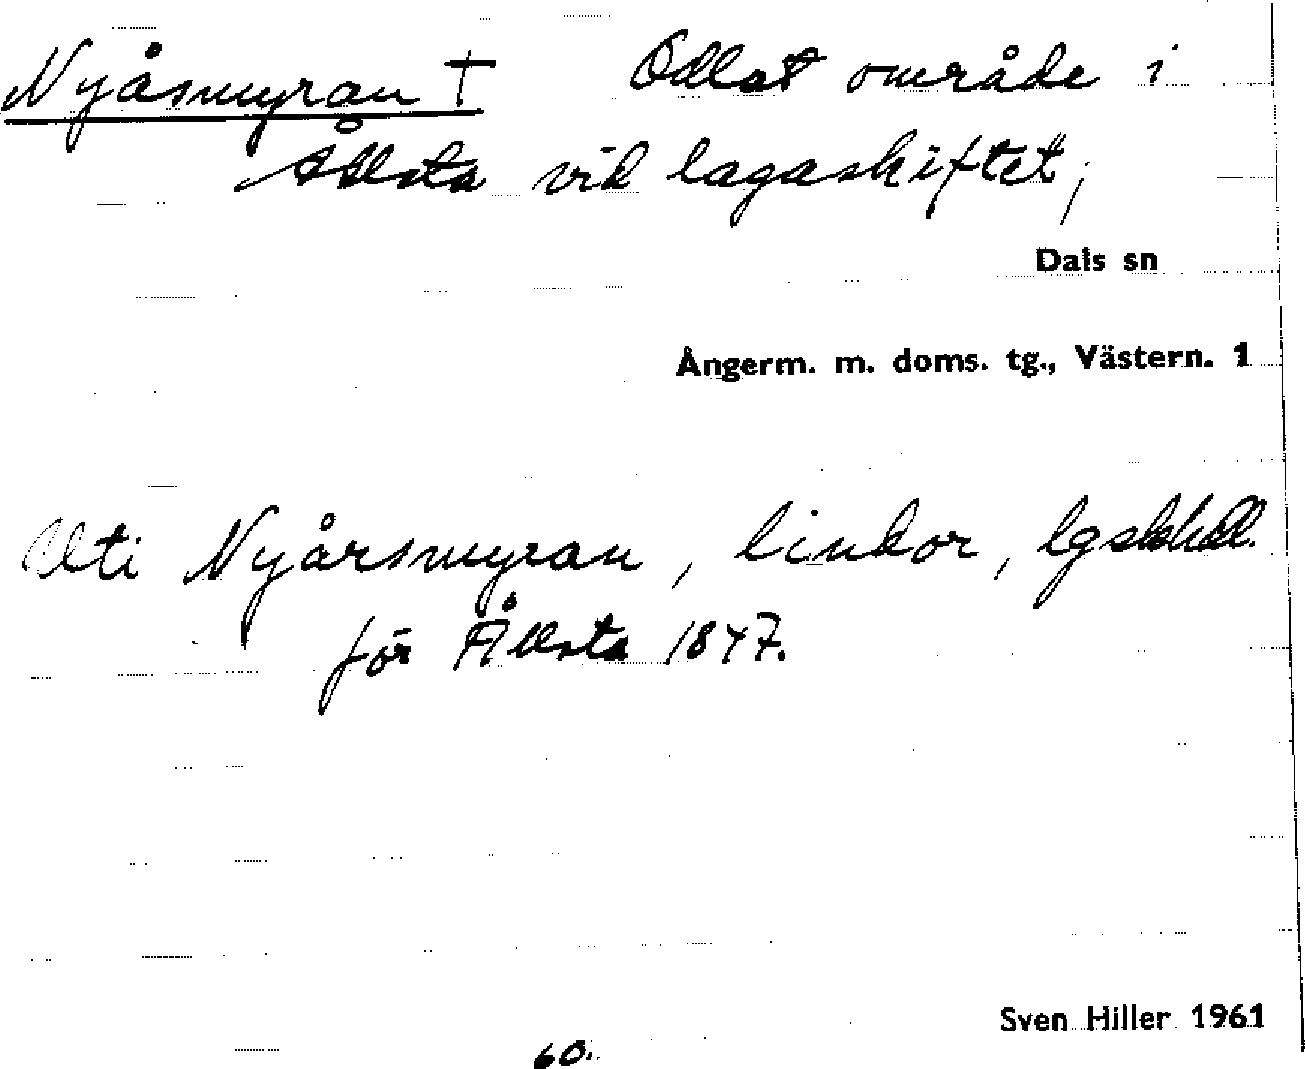 Nyåsmyran † Odlat område i
Ållsta vid lagaskiftet;
Dals sn
Ångerm. m. doms. tg., Västern. 1
Uti Nyårsmyran, lindor,
för Ållsta 1847.
Sven Hiller 1961
60.